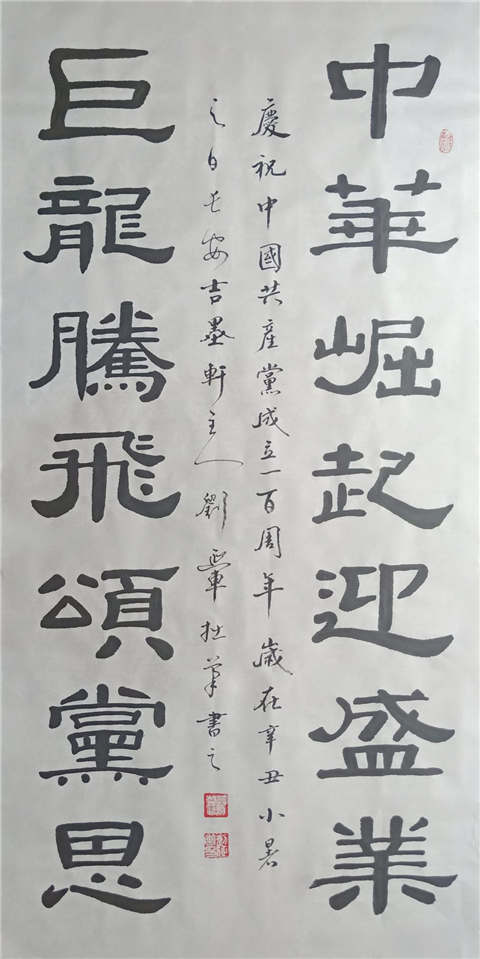 中華崛起迎盛業
慶祝中國共産黨成立一百周年歲在辛丑小暑
之日長安吉墨軒主人劉拙筆書之
巨龍騰飛頌黨恩